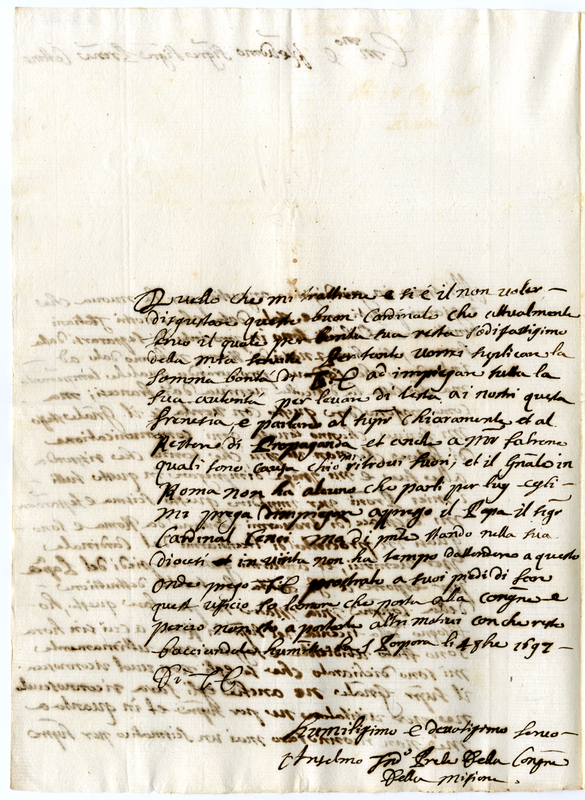 Quello che mi trattiene e si è il non voler
disgustare questo buon Cardinale che attualmente
servo il quale per bontà sua resta sodisfatissimo
della mia Per tanto vorrei suplicar la
somma bontà di V. E. ad impiegar tutta la
sua autorità per levare di testa, ai nostri questa
frenesia, e parlare al sigr Chiaramente et al
di Propaganda et anche a Mor Fatrone
quali sono causa ch'io ritrovi fuori, et il Gñale in
Roma non ha alcuno che parli per luy egli
mi prega d'impiegare appresso il Papa il sigr
Cardinal Cenci ma di pnte stando nella sua
diocesi et in visita non ha tempo d'attendere a questo
onde prego V. E. prostrato a suoi piedi di far
quest ufficio per l'amore che porta alla Congñe e
perciò non sto a portarle altri motivi con che resto
bacciandole humilte la Popora li 4 9bre 1697
Di V. E.
Humilissimo e devotissimo servo
Anselmo Della Congñe
Della Missione